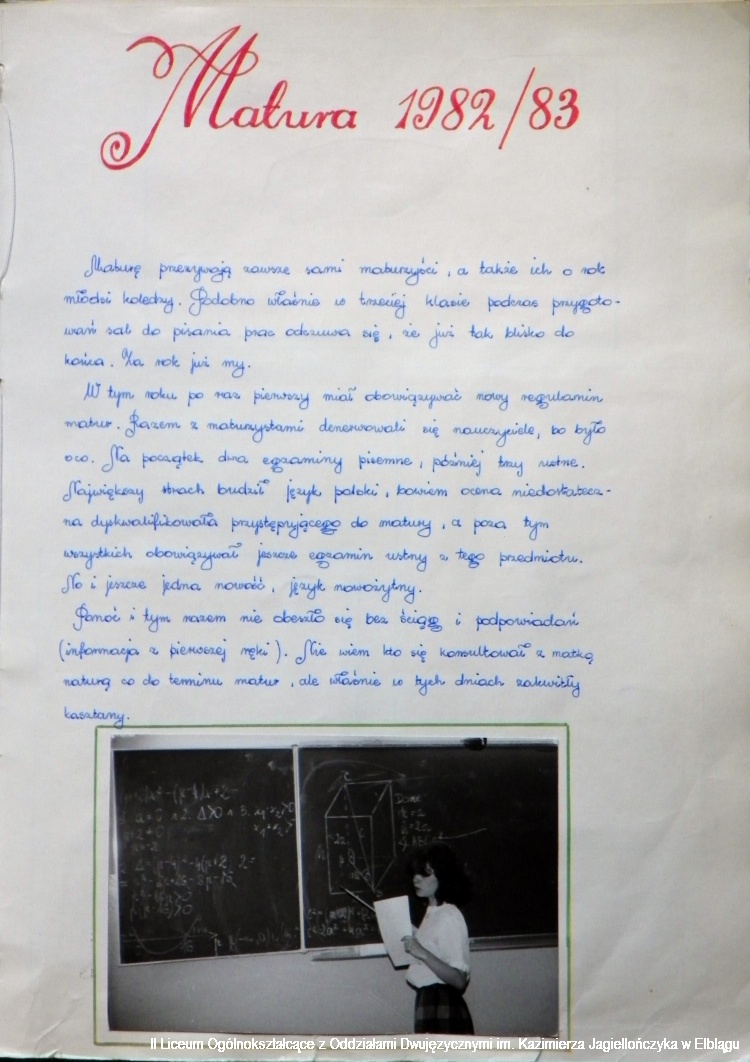 Matura 1982/83
Maturę przeżywają zawsze sami maturzyści, a także ich o rok
młodsi koledzy. Podobno właśnie w trzeciej klasie podczas przygoto-
wań sal do pisania prac odczuwa się, że już tak blisko do
końca. Za rok już my.
W tym roku po raz pierwszy miał obowiązywać nowy regulamin
matur. Razem z maturzystami denerwowali się nauczyciele, bo było
o co. Na początek dwa egzaminy pisemne, później trzy ustne.
Największy strach budził język polski, bowiem ocena niedostatecz-
na dyskwalifikowała przystępującego do matury, a poza tym
wszystkich obowiązywał jeszcze egzamin ustny z tego przedmiotu.
No i jeszcze jedna nowość, język nowożytny.
Ponoć i tym razem nie obeszło się bez ściąg i podpowiadań
(informacja z pierwszej ręki). Nie wiem kto się konsultował z matką
naturą co do terminu matur, ale właśnie w tych dniach zakwitły
kasztany.
II Liceum Ogólnokształcące z Oddziałami Dwujęzycznymi im. Kazimierza Jagiellończyka w Elblągu